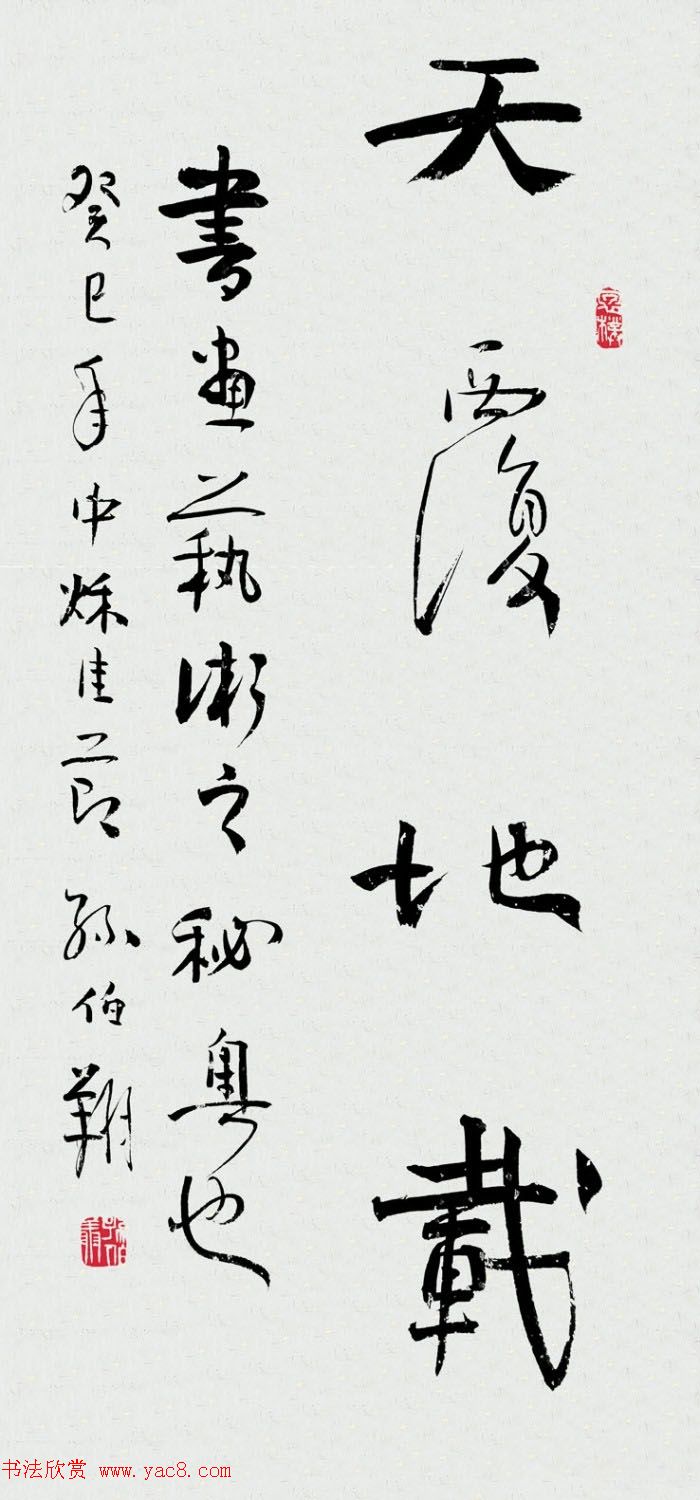 天覆地載
書畫藝術之秘奧也
癸巳年中秌佳節孫伯翔
书法欣赏 www.yac8.com